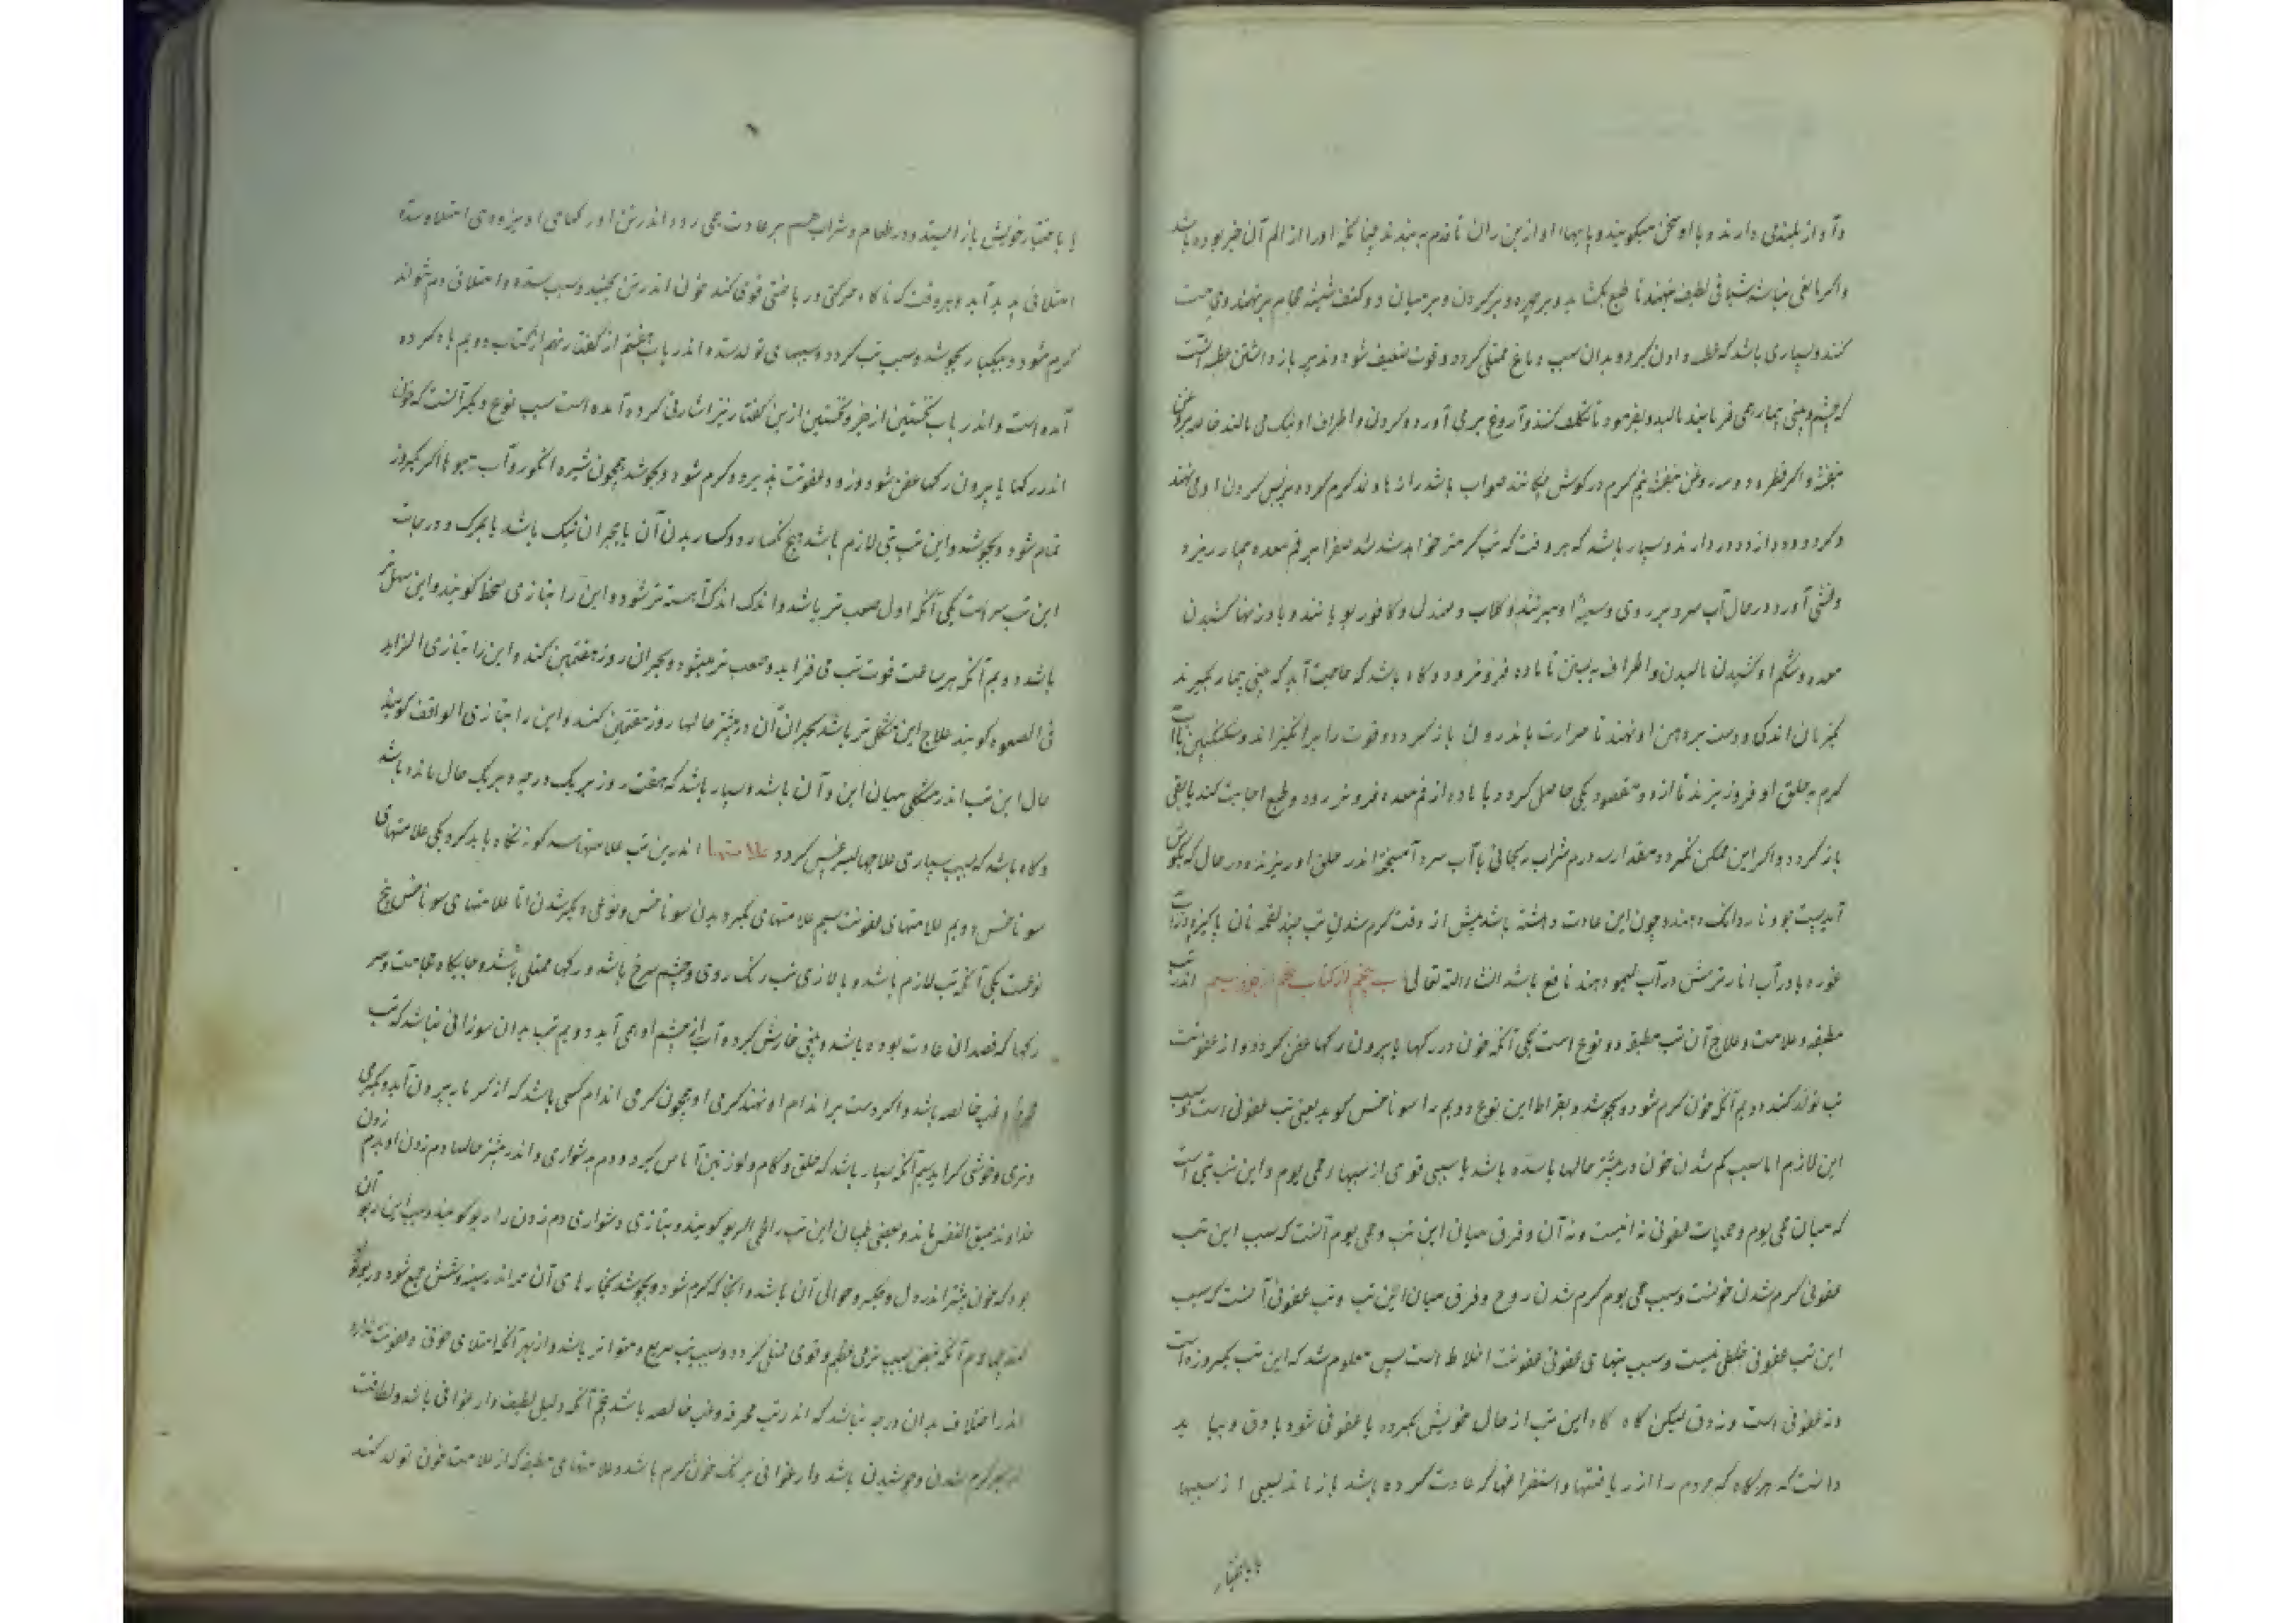 وآواز بلندی دارند و با او سخن میگویند و پایهاء او از بن ران تا قدم به بندند چنانکه او را از الم آن خبر بوده باشد
واگر مانعی نباشد شیافی لطیف بنهند تا طبع بکشاید و بر چهره و بر گردن و بر میان دو کتف شیشه محاجم بر نهند و بی
کنند و بسیاری باشد که عطسه دادن گیرد و بدان سبب دماغ ممتلی گردد و قوت ضعیف شود و تدبیر باز داشتن عطسه آنست
که چشم و بینی بیمار همی فرمایند مالید و بفرمود تا تکلف کنند و آروغ بر می آورد و گردن و اطراف او نیک می مالند
بنفشه و اگر قطره دو سه روغن بنفشه نیم گرم در گوش چکانند صواب باشد و گرم کرده بر پس گردن او می نهند
و گرد و دود از و دور دارند و بسیار باشد که هر وقت که تب گرمتر خواهد شد صفرا بر فم معده بیمار ریزد
و غشی آورد در حال آب سرد بر روی و سینه او میزنند و گلاب و صندل و کافور بویانند و باد زنها کشیدن
معده و شکم او کشیدن مالیدن و اطراف به بستن تا ماده فروتر رود و گاه باشد که حاجت آید که بینی بیمار بگیرند
یکزمان اندکی و دست بر دهن او نهند تا حرارت باندرون باز گردد و قوت را بر انگیزاند و سکنگبین باآب
گرم به حلق او فرو ریزند تا از دو مقصود یکی حاصل گردد یا ماده از فم معده فروتر رود و طبع اجابت کند یا بقی
باز گردد و اگر این ممکن نگردد مقدار سه درم شراب ریحانی با آب سرد آمیخته اندر حلق او ریزند در حال که بهوش
آید پست جو و ناردانگ دهند و چون این عادت دانسته باشد پیش از وقت گرم شدن تب چند لقمه نان پاکیزه در آب
غوره یا در آب انار ترش در آب لیمو دهند نافع باشد انشاء الله تعالی باب پنجم از کتاب پنجم از جزو سیم اندر تب
مطبقه و علامت و علاج آن تب مطبقه دو نوع است یکی آنکه خون در رگها یا بیرون رگها عفن گردد و از عفونت
تب تولد کند دویم آنکه خون گرم شود و بجوشد و بقراط این نوع دویم را سوناخس گوید یعنی تب عفونی است و سبب
این لازم اما سبب گرم شدن خون در بیشتر حالها یا سده باشد یا سببی قوی از سببها حمی یوم و این تب تبی است
که میان حمی یوم و حمیات عفونی نه اینست و نه آن و فرق میان این تب و حمی یوم آنست که سبب این تب
عفونی گرم شدن خونست و سبب حمی یوم گرم شدن روح و فرق میان این تب و تب عفونی آنست که سبب
این تب عفونی خلطی نیست و سبب تبهای عفونی عفونت اخلاط است پس معلوم شد که این تب یکروزه است
و نه عفونی است و نه دق لیکن گاه گاه این تب از حال خویش بگردد یا عفونی شود یا دق و بباید
دانست که هر گاه که مردم را از ریاضتها و استفراغها که عادت کرده باشد باز ماند بسببی از سببها
یا باختیار
یا باختیار خویش باز ایستد و در طعام و شراب هم بر عادت می رود اندر تن او رگهای او میزودی امتلا و سده
امتلائی پدید آید و هر وقت که ناگاه حرکتی و ریاضتی قوی کند خون اندر تن بجنبد و بسبب سده و امتلائی دم
گرم شود و بیکبار بجوشد و سبب تب گردد و سببهای تولد سده اندر باب هفتم از گفتار نهم از کتاب دویم یاد کرده
آمده است و اندر باب نخستین از جزو نخستین ازین گفتار نیز اشارتی کرده آمده است سبب نوع دیگر آنست که خون
اندر رگها یا بیرون رگها عفن شود و زود عفونت پذیرد و گرم شود و بجوشد همچون شیره انگور و آب میوها اگر یکروز
تمام شود و بجوشد و این تب تبی لازم باشد هیچ نگسارد و گساریدن آن یا بحران نیک باشد یا بمرگ و درجات
این تب سه است یکی آنکه اول صعب تر باشد و اندک اندک آهسته تر شود و این را بتازی منحط گویند و این سهل تر
باشد دویم آنکه هر ساعت قوت تب می فزاید و صعب تر میشود و بحران روز هفتمین کند و این را بتازی المتزاید
فی الصعوبه گویند علاج این مشکل تر باشد بحران آن در بیشتر حالها روز هفتمین کند و این را بتازی الواقف گویند
حال این تب اندر مشکلی میان این و آن باشد و بسیار باشد که هفت روز بر یک درجه و بر یک حال مانده باشد
و گاه باشد که بسبب بسیاری علاجها لیثرغس گردد علامتها اندرین تب علامتها سه گونه نگاه باید کرد یکی علامتهای
سوناخس دویم علامتهای عفونت سیم علامتهای گردیدن سوناخس و نوعی دیگر شدن اما علامتهای سوناخس پنج
نوعست یکی آنکه تب لازم باشد و با لازمی تب رنگ روی و چشم سرخ باشد و رگها ممتلی باشد و جایگاه حجامت و سر
رگها که فصد آن عادت بوده باشد و بینی خارش گیرد و آب از چشم او همی آید دویم تب بدان سوزانی نباشد که تب
محرقه و غب خالصه باشد و اگر دست بر اندام او نهند گرمی او همچون گرمی اندام کسی باشد که از گرمابه بیرون آید و بگرمی
و تری و خوشی گراید سیم آنکه بسیار باشد که حلق و کام و لوزتین آماس گیرد و دم بدشواری زدن و اندر بیشتر حالها دم زدن او بدم
خداوند ضیق النفس ماند و بعضی طبیبان این تب را حمی الربو گویند و بتازی دشواری دم زدن را ربو گویند و سبب این ربو آن
بود که خون بیشتر اندر دل و جگر و حوالی آن باشد و آنجا که گرم شود و بجوشد بخارهای آن اندر سینه و شش جمع شود و ربو تولد
کند چهارم آنکه نبض بسبب نرمی عظیم و قوی ممتلی گردد و بسبب تب سریع و متواتر باشد و از بهر آنکه امتلای خونی و عفونت ندارد
اندر اختلاف بدان درجه نباشد که اندر تب محرقه و غب خالصه باشد پنجم آنکه دلیل لطیف و ارغوانی باشد و لطافت
از بهر گرم شدن و جوشیدن باشد و ارغوانی بر رنگ خون گرم باشد و علامتهای مطبقه که از علامت خون تولد کند